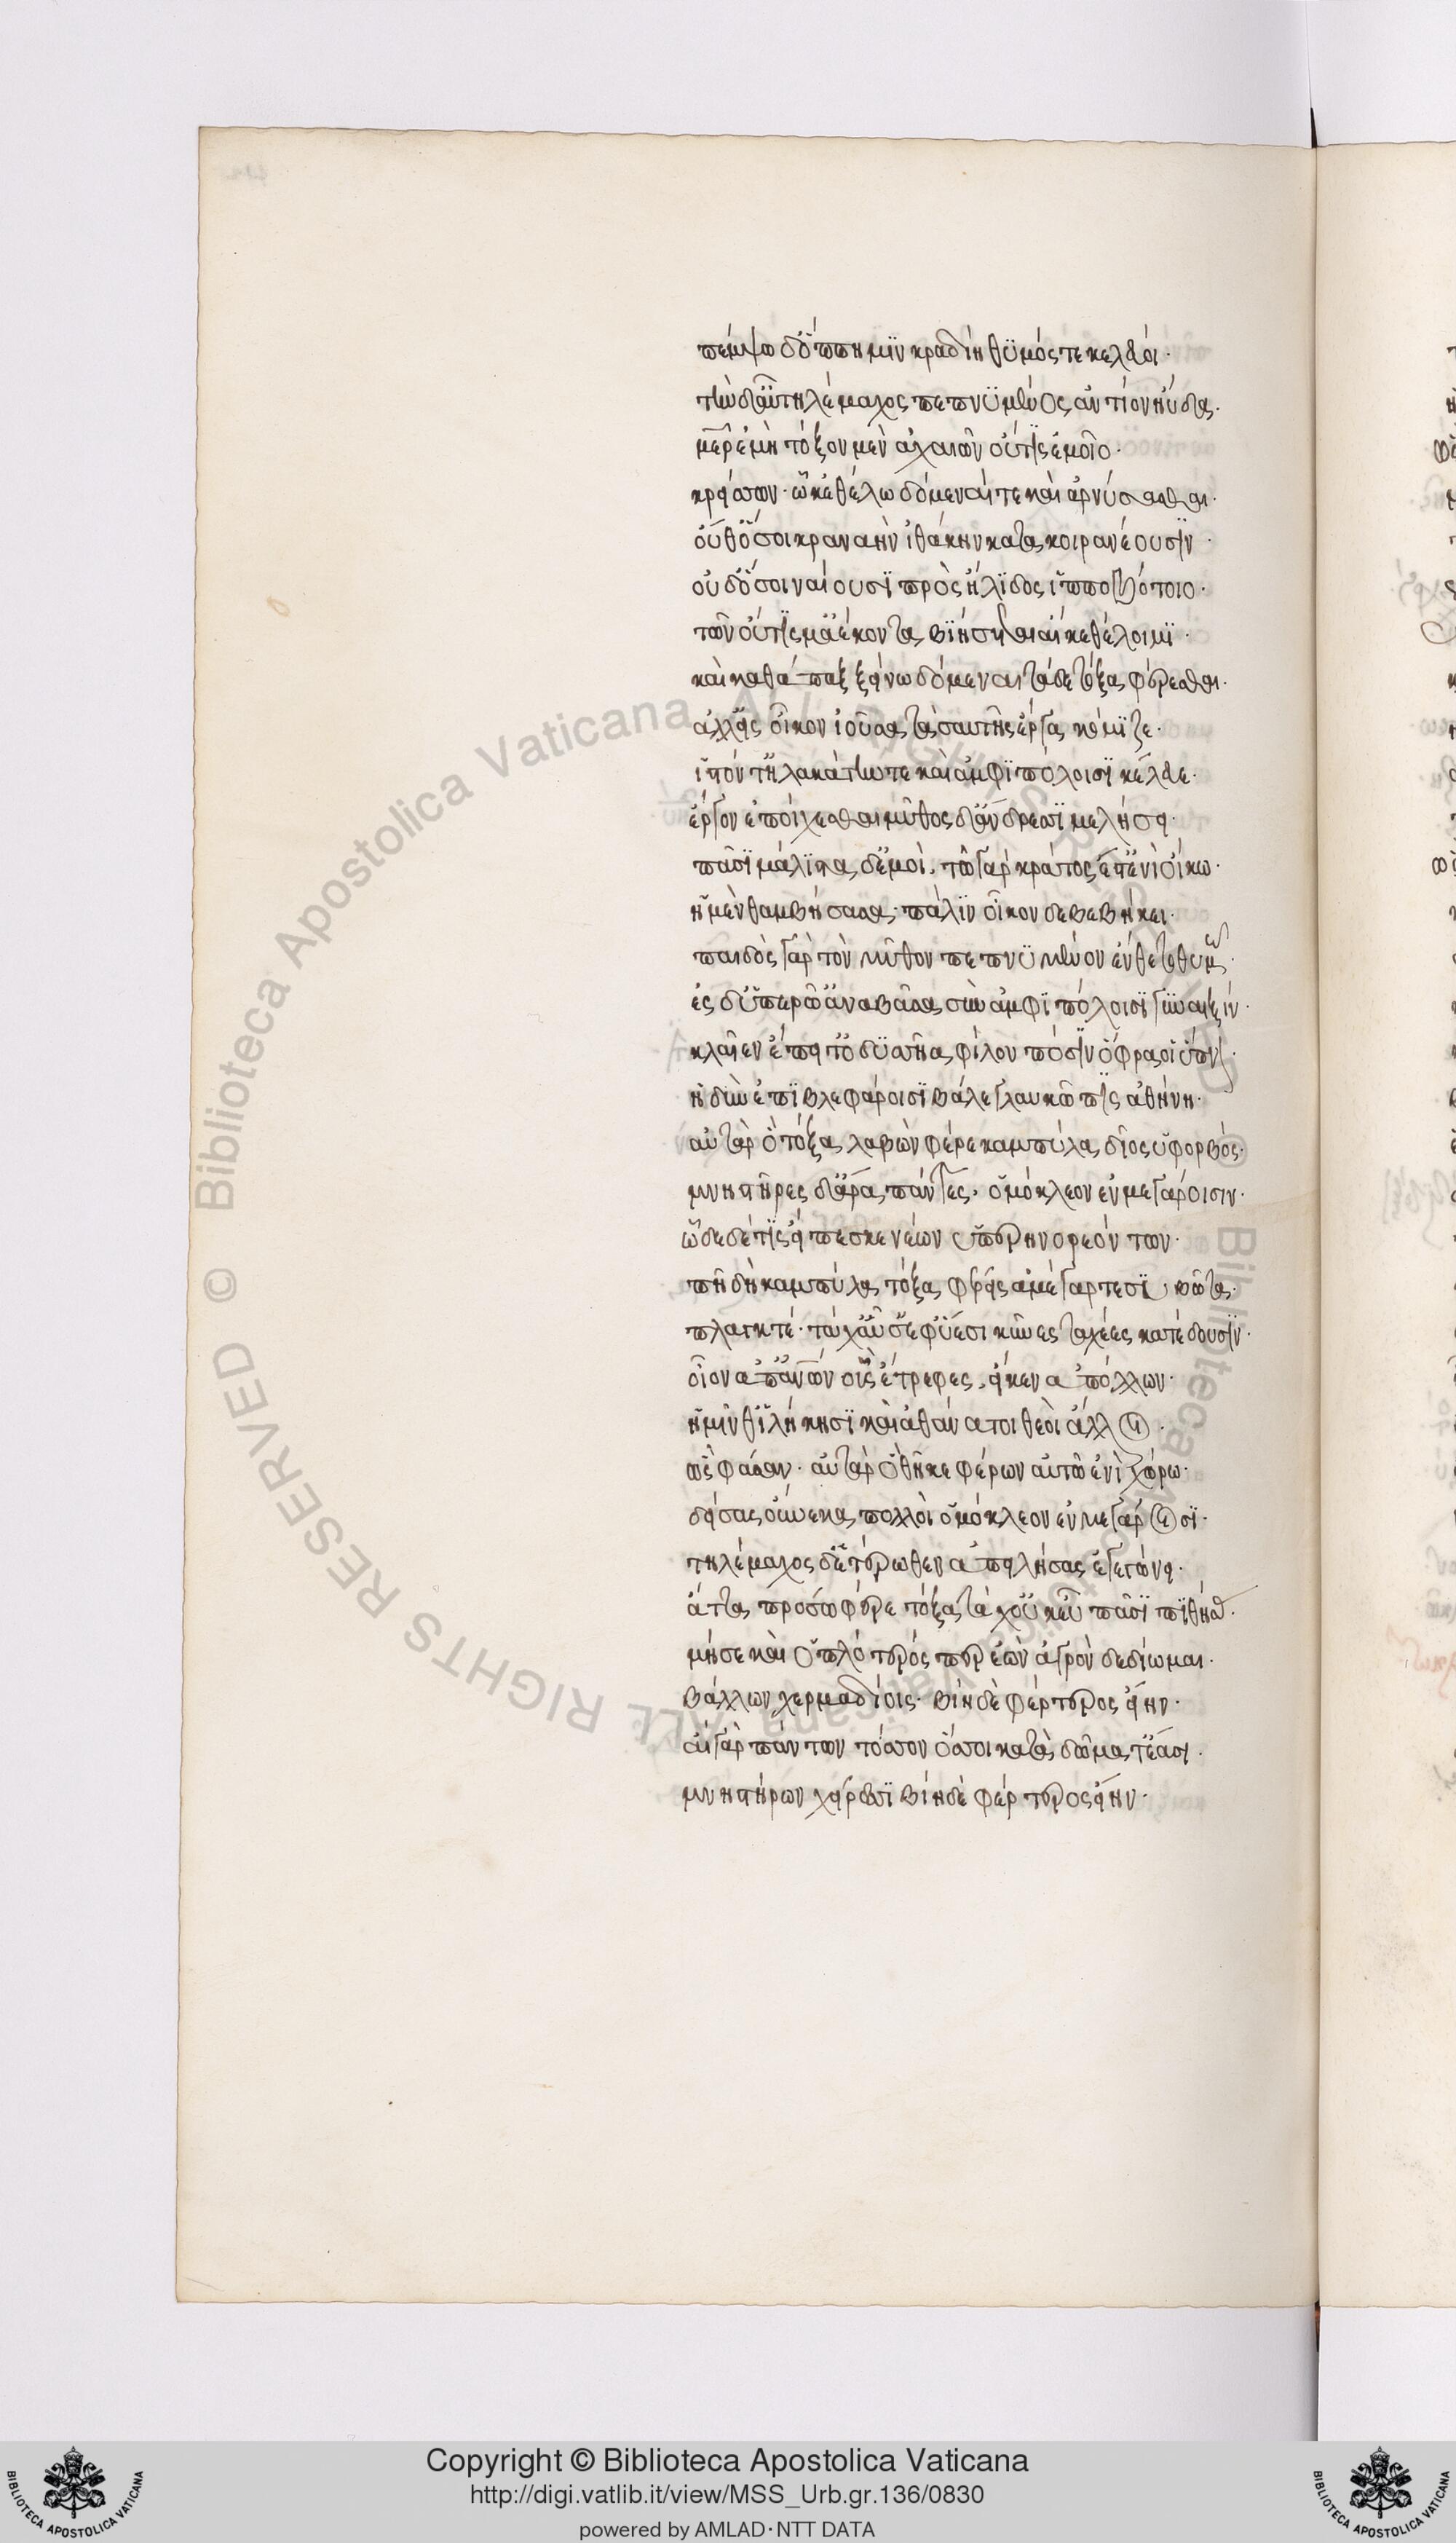 πέμψω δ' ὅππη μϊν κραδίη θϋμός τε κελεύοι·
τὴν δ' αὖ τηλέμαχος πεπνϋμένος ἀντίον ηὔδα·
μῆτερ ἐμὴ τόξον μὲν ἀχαιῶν οὔτϊς ἐμοῖο·
κρείσσων· ᾧ κ' ἐθέλω δόμεναί τε καὶ ἀρνύσασθαι·
οὔθ' ὅσσοι κραναὴν ἰθάκην κάτα κοιρανέουσϊν·
οὐδ' ὅσσοι ναίουσϊ πρὸς ἤλϊδος ἱπποβότοιο·
τῶν οὔτϊς μ' ἀέκοντα βϊήσεται αἴ κε θέλοιμϊ·
καὶ καθάπαξ ξείνω δόμεναι τάδε τόξα φέρεσθαι·
ἀλλ' εἰς οἶκον ἰοῦσα τὰ σαυτῆς ἔργα κόμϊζε·
ἱστόν τ' ἠλακάτην τε καὶ ἀμφϊπόλοισϊ κέλευε·
ἔργον ἐποίχεσθαι μῦθος δ' ἄνδρεσσϊ μελήσει·
πᾶσϊ μάλϊστα δ' ἐμοὶ. τοῦ γὰρ κράτος ἔστ' ἐνὶ οἴκω·
ἡ μὲν θαμβήσασα· πάλϊν οἶκον δὲ βεβήκει·
παιδὸς γὰρ τὸν μῦθον πεπνϋμένον ἔνθετο θυμῷ·
ἐς δ' ὑπερῶ' ἀναβᾶσα σὺν ἀμφϊπόλοισϊ γυναιξίν·
κλαῖεν ἔπειτ' ὀδϋσῆα φίλον πόσϊν ὄφρα οἱ ὕπνον·
ἡδὺν ἐπὶ βλεφάροισϊ βάλε γλαυκῶπϊς ἀθήνη·
αὐτὰρ ὁ τόξα λαβὼν φέρε καμπύλα δῖος ὑφορβός·
μνηστῆρες δ' ἄρα πάντες. ὁμόκλεον ἐν μεγάροισιν·
ὧδε δέ τϊς εἴπεσκε νέων ὑπερηνορεόντων·
πῆ δὴ καμπύλα τόξα φέρεις ἀμέγαρτε σϊ υβῶτα·
πλαγκτέ· τάχ' αὖ σ' ἐφ' ὕεσι κύνες ταχέες κατέδουσϊν·
οἶον ἀπ' ἀνθρώπων οὓς ἔτρεφες. εἴ κεν ἀπόλλων·
ἡμϊν θ' ἱλήκησϊ καὶ ἀθάνατοι θεοὶ ἄλλοι·
ὣς φάσαν· αὐτὰρ ὁ θῆκε φέρων αὐτῶ ἐνὶ χώρω·
δείσας οὕνεκα πολλοὶ ὁμόκλεον ἐν μεγάροισϊ·
τηλέμαχος δ' ἑτέρωθεν ἀπειλήσας ἐγεγώνει·
ἄττα πρόσσω φέρε τόξα τάχ' οὐκ εὖ πᾶσϊ πϊθήσεις·
μή σε καὶ ὁπλότερός περ ἐὼν ἀγρὸν δὲ δίωμαι·
βάλλων χερμαδίοις· βίη δὲ φέρτερος εἴην·
αἲ γὰρ πάντων τόσσον ὅσσοι κατὰ δῶμα τ' ἔασι·
μνηστήρων χείρεσσϊ βίη δὲ φέρτερος εἴην·
Copyright © Biblioteca Apostolica Vaticana
http://digi.vatlib.it/view/MSS_Urb.gr.136/0830
powered by AMLAD·NTT DATA